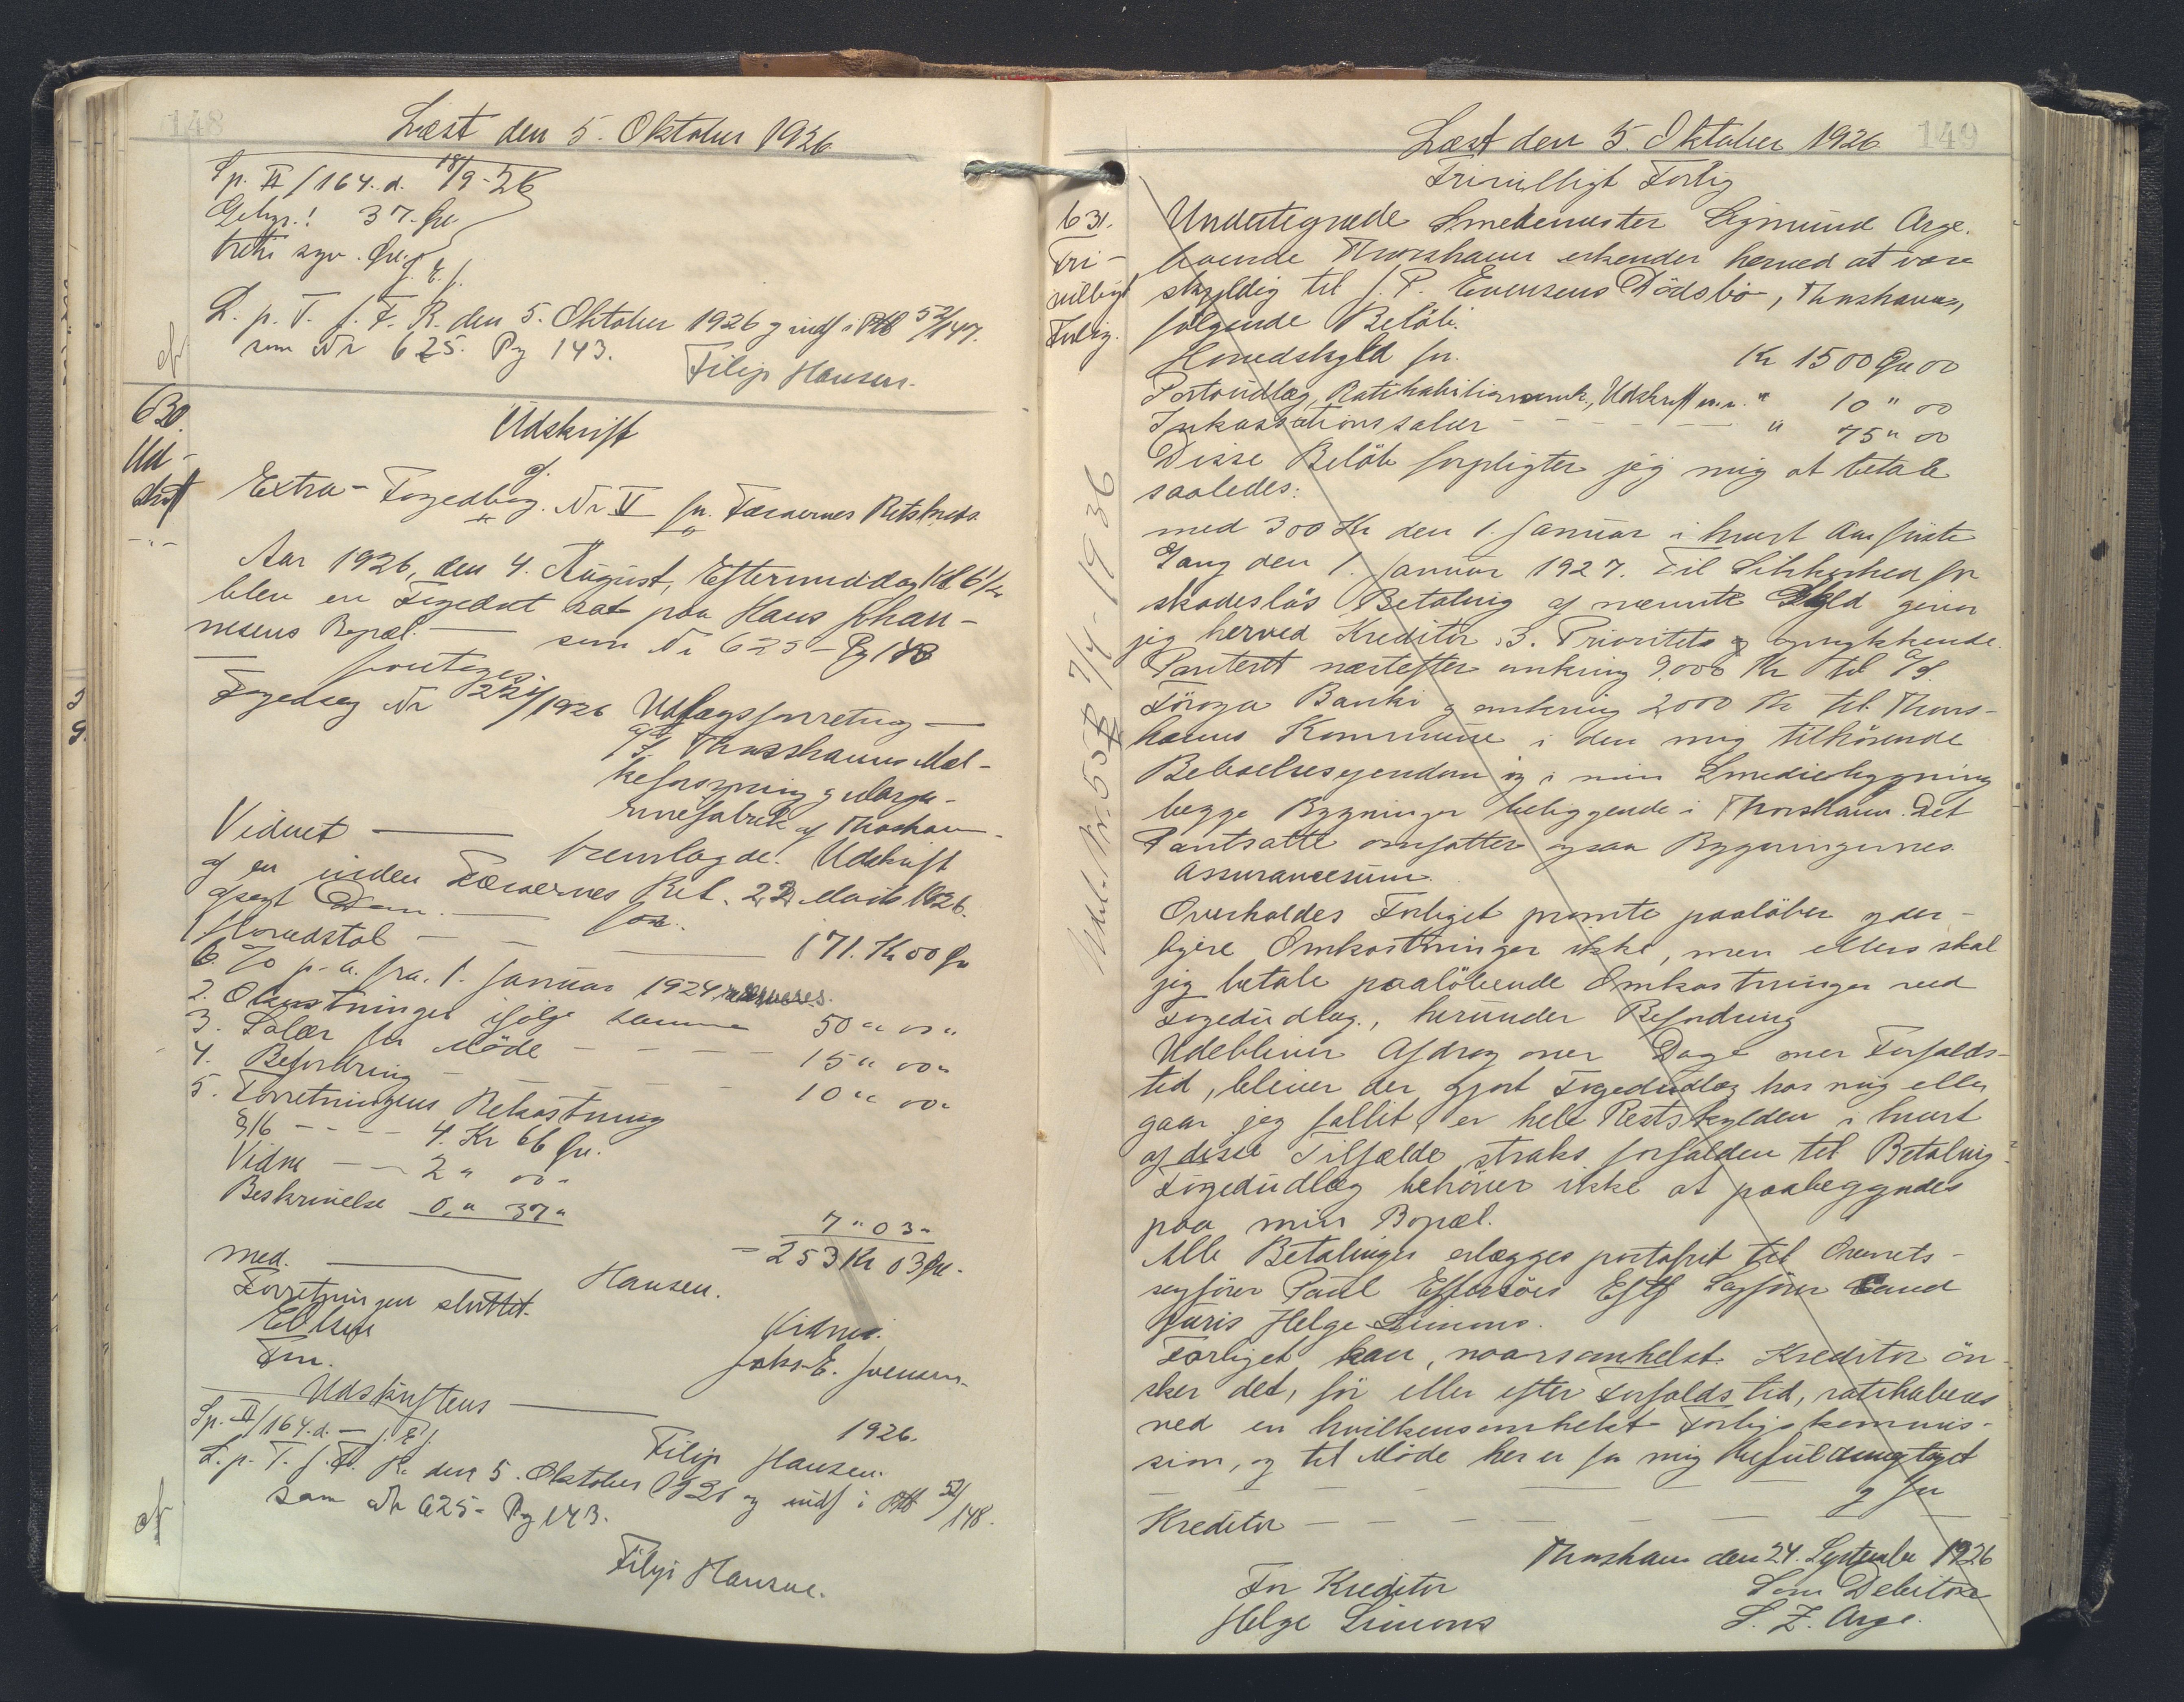 148
Læst den 5. Oktober 1926
Sp. II/164.d. 18/9-26
Gebyr.: 37. Øre
treti syv. Øre.
J. E. J.
L. p. T. f. F. R. den 5. Oktober 1926 og indf i Ptb 52/147.
som Nr 625. Pg 143.
Filip Hansen.
630.
Ud-
skrift
Udskrift
af.
Extra-Fogedbog. Nr II for Færøernes Retskreds.
Aar 1926, den 4. August, Eftermiddag Kl 6 1/2
blev en Fogedret sat paa Hans Johan-
nesens Bopæl. som Nr 625 - Pg 143
foretoges
Fogedsag Nr 221/1926 Udlægsforretning
A/S Thorshavns Mæl-
keforsyning og Marga-
rinefabrik af Thorshavn.
Vidnet fremlagde. Udskrift
af en inden Færøernes Ret. 22 Marts 1926.
afsagt Dom. for.
1 Hovedstol 171. Kr 00 Ør
6. % p. a. fra. 1. Januar 1924
2. Omkostninger ifølge samme 50 " 00 "
3. Salær for Møde 15 " 00 "
4. Befordring 10 " 00 "
5. Forretningens Bekostning
§16 4. Kr 66 Øre.
Vidne 2 " 00 "
Beskrivelse 0 " 37 "
7 " 03 "
253 Kr 03 Øre.
med. Hansen.
Forretningen sluttet.
Ellefsen
Fm.
Vidner.
Joks. E. Joensen.
Udskriftens 1926.
Sp. II/164.d. J. E. J. Filip Hansen.
L. p. T. f. F. R. den 5. Oktober 1926 og indf i Ptb 52/148.
som Nr 625- Pg 143.
Filip Hansen.
149
Læst den 5. Oktober 1926
Frivilligt Forlig
631.
Fri-
villigt
Forlig.
Undertegnede Smedemester Sigmund Arge.
boende Thorshavn erkender herved at være
skyldig til J. P. Evensens Dödsbo, Thorshavn,
følgende Beløb.
Hovedskyld for. Kr 1500 Øre 00
Portoudlæg, Ratihabitionsomk., Udskrift m.m. " 10 " 00
Inkassationssalær " 75 " 00
Disse Beløb forpligter jeg mig at betale
saaledes:
med 300 Kr den 1. Januar i hvert Aar første
Gang den 1. Januar 1927. Til Sikkerhed for
skadesløs Betaling af nævnte Gæld giver
jeg herved Kreditor 3. Prioritets og oprykkende
Panteret næstefter omkring 9.000 Kr til A/S.
Föroya Banki og omkring 2000 Kr til Thors-
havns Kommune i den mig tilhörende
Beboelsesejendom og i min Smediebygning
begge Bygninger beliggende i Thorshavn. Det
Pantsatte omfatter ogsaa Bygningernes
Assurancesum.
Overholdes Forliget promte paalöber yder-
ligere Omkostninger ikke, men ellers skal
jeg betale paalöbende Omkostninger ved
Fogedudlæg, herunder Befordring
Udebliver Afdrag over Dage over Forfalds-
tid, bliver der gjort Fogedudlæg hos mig eller
gaar jeg fallit, er hele Restskylden i hvert
af disse Tilfælde straks forfalden til Betaling.
Fogedudlæg behöver ikke at paabegyndes
paa min Bopæl.
Alle Betalinger erlægges portofrit til Overrets-
sagförer Paul Eftf Sagförer Cand
Juris Helge Simons.
Forliget kan, naarsomhelst Kreditor ön-
sker det, för eller efter Forfaldstid, ratihaberes
ved en hvilkensomhelst Forligskommis-
sion, og til Möde her er for mig befuldmægtiget
og for
Kreditor
Thorshavn den 24. September 1926
For Kreditor Som Debitor
Helge Simons S. Z. Arge.